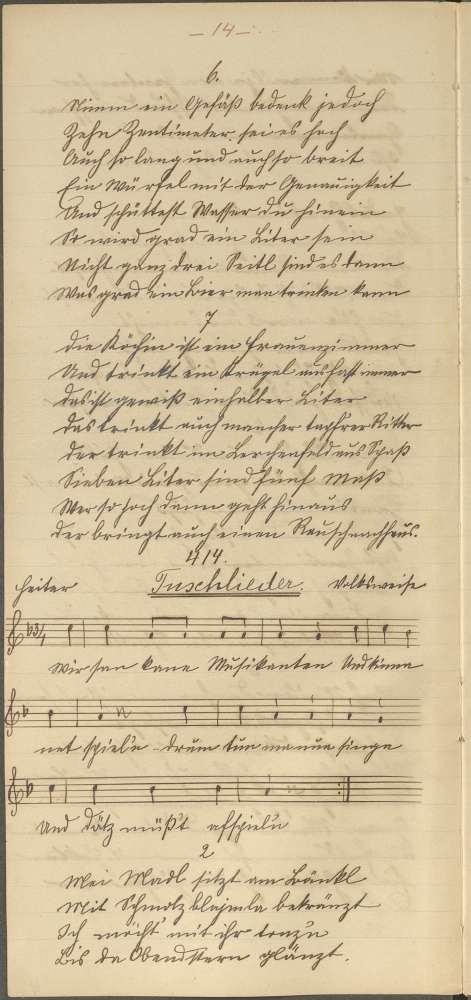 – 14 –
6.
Nimm ein Gefäß bedenk jedoch
Zehn Zentimeter sei es hoch
Auch so lang und auch so breit
Ein Würfel mit der Genauigkeit
Und schüttest Wasser du hinein
So wird grad ein Liter sein
Nicht ganz drei Seitl sind es dann
Was grad ein Bier man trinken kann
7
Die Köchin ist ein Frauenzimmer
Und trinkt ein Krügel aus fast immer
Das ist gewiß ein halber Liter
Das trinkt auch mancher tapfrer Ritter
Der trinkt im Lerchenfeld aus Spaß
Sieben Liter sind fünf Maß
Wer so hoch dann geht hinaus
Der bringt auch einen Rausch nach Haus.
414.
heiter Tuschlieder. Volksweise
3/4
Wir san kane Musikanten Und kinna
net spiel'n drum tun ma nua singa
Und Dötz müßt afspiel'n
2
Mei Madl sitzt am Bänkl
Mit Schmolzblajmla bekränzt
Ich möcht mit ihr tonz'n
Bis da Obendstern glänzt.